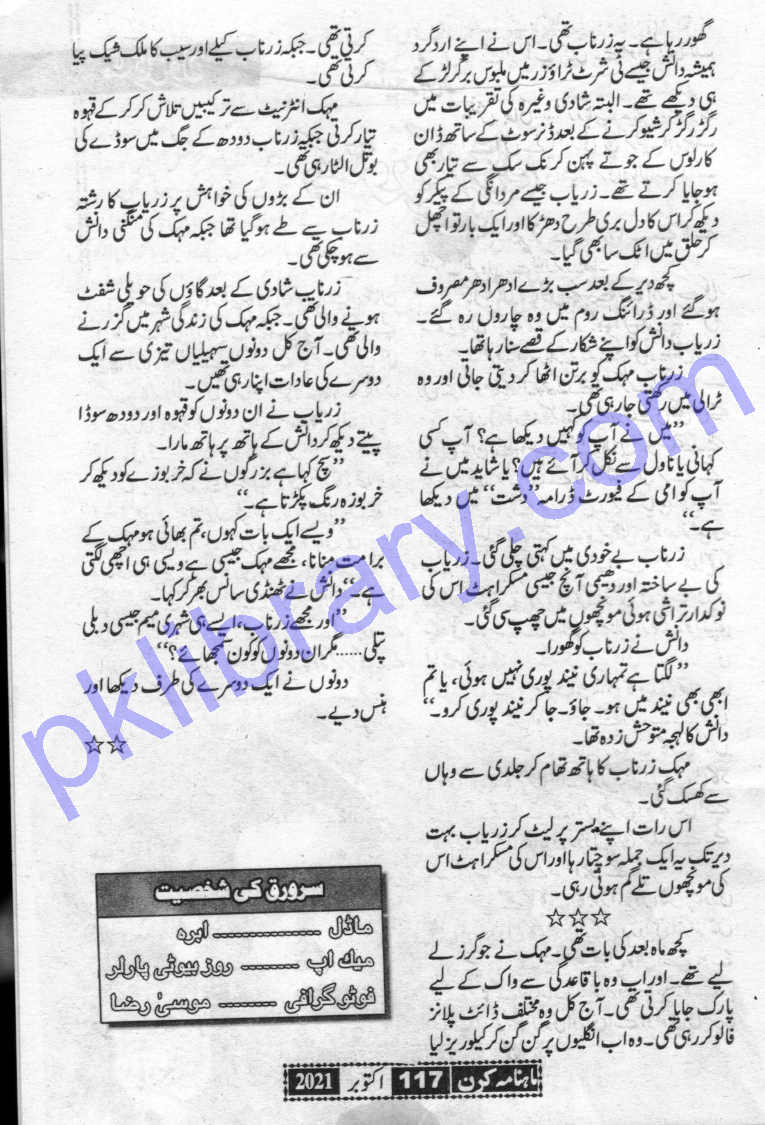 گھور رہا ہے۔ یہ زرناب تھی۔ اس نے اپنے ارد گرد
ہمیشہ دانش جیسے ٹی شرٹ ٹراؤزر میں ملبوس برگر لڑکے
ہی دیکھے تھے۔ البتہ شادی وغیرہ کی تقریبات میں
رگڑ رگڑ کر شیو کرنے کے بعد ڈنر سوٹ کے ساتھ ڈان
کارلوس کے جوتے پہن کر نک سک سے تیار بھی
ہو جایا کرتے تھے۔ زریاب جیسے مردانگی کے پیکر کو
دیکھ کر اس کا دل بری طرح دھڑکا اور ایک بار تو اچھل
کر حلق میں اٹک سا بھی گیا۔
کچھ دیر کے بعد سب بڑے ادھر ادھر مصروف
ہو گئے اور ڈرائنگ روم میں وہ چاروں رہ گئے۔
زریاب دانش کو اپنے شکار کے قصے سنا رہا تھا۔
زرناب مہک کو برتن اٹھا کر دیتی جاتی اور وہ
ٹرالی میں رکھتی جا رہی تھی۔
”میں نے آپ کو کہیں دیکھا ہے؟ آپ کسی
کہانی یا ناول سے نکل کر آئے ہیں؟ یا شاید میں نے
آپ کو امی کے فیورٹ ڈرامہ ”دشت“ میں دیکھا
ہے۔“
زرناب بے خودی میں کہتی چلی گئی۔ زریاب
کی بے ساختہ اور دھیمی آنچ جیسی مسکراہٹ اس کی
نوکدار تراشی ہوئی مونچھوں میں چھپ سی گئی۔
دانش نے زرناب کو گھورا۔
”لگتا ہے تمہاری نیند پوری نہیں ہوئی، یا تم
ابھی بھی نیند میں ہو۔ جاؤ۔ جا کر نیند پوری کرو۔“
دانش کا لہجہ متوحش زدہ تھا۔
مہک زرناب کا ہاتھ تھام کر جلدی سے وہاں
سے کھسک گئی۔
اس رات اپنے بستر پر لیٹ کر زریاب بہت
دیر تک یہ ایک جملہ سوچتا رہا اور اس کی مسکراہٹ اس
کی مونچھوں تلے گم ہوتی رہی۔
☆☆☆
کچھ ماہ بعد کی بات تھی۔ مہک نے جوگرز لے
لیے تھے۔ اور اب وہ باقاعدگی سے واک کے لیے
پارک جایا کرتی تھی۔ آج کل وہ مختلف ڈائٹ پلانز
فالو کر رہی تھی۔ وہ اب انگلیوں پر گن گن کر کیلوریز لیا
کرتی تھی۔ جبکہ زرناب کیلے اور سیب کا ملک شیک پیا
کرتی تھی۔
مہک انٹرنیٹ سے ترکیبیں تلاش کر کر کے قہوہ
تیار کرتی جبکہ زرناب دودھ کے جگ میں سوڈے کی
بوتل الٹا رہی تھی۔
ان کے بڑوں کی خواہش پر زریاب کا رشتہ
زرناب سے طے ہو گیا تھا جبکہ مہک کی منگنی دانش
سے ہو چکی تھی۔
زرناب شادی کے بعد گاؤں کی حویلی شفٹ
ہونے والی تھی۔ جبکہ مہک کی زندگی شہر میں گزرنے
والی تھی۔ آج کل دونوں سہیلیاں تیزی سے ایک
دوسرے کی عادات اپنا رہی تھیں۔
زریاب نے ان دونوں کو قہوہ اور دودھ سوڈا
پیتے دیکھ کر دانش کے ہاتھ پر ہاتھ مارا۔
”سچ کہا ہے بزرگوں نے کہ خربوزے کو دیکھ کر
خربوزہ رنگ پکڑتا ہے۔“
”ویسے ایک بات کہوں، تم بھائی ہو مہک کے
برا مت منانا، مجھے مہک جیسی ہے ویسی ہی اچھی لگتی
ہے۔“ دانش نے ٹھنڈی سانس بھر کر کہا۔
”اور مجھے زرناب، ایسے ہی شہری میم جیسی دبلی
پتلی ..... مگر ان دونوں کو کون سمجھائے؟“
دونوں نے ایک دوسرے کی طرف دیکھا اور
ہنس دیے۔
☆☆
سرورق کی شخصیت
ماڈل --------------- ابرہ
میک اپ -------- روز بیوٹی پارلر
فوٹوگرافی -------- موسیٰ رضا
ماہنامہ کرن 117 اکتوبر 2021
pklibrary.com